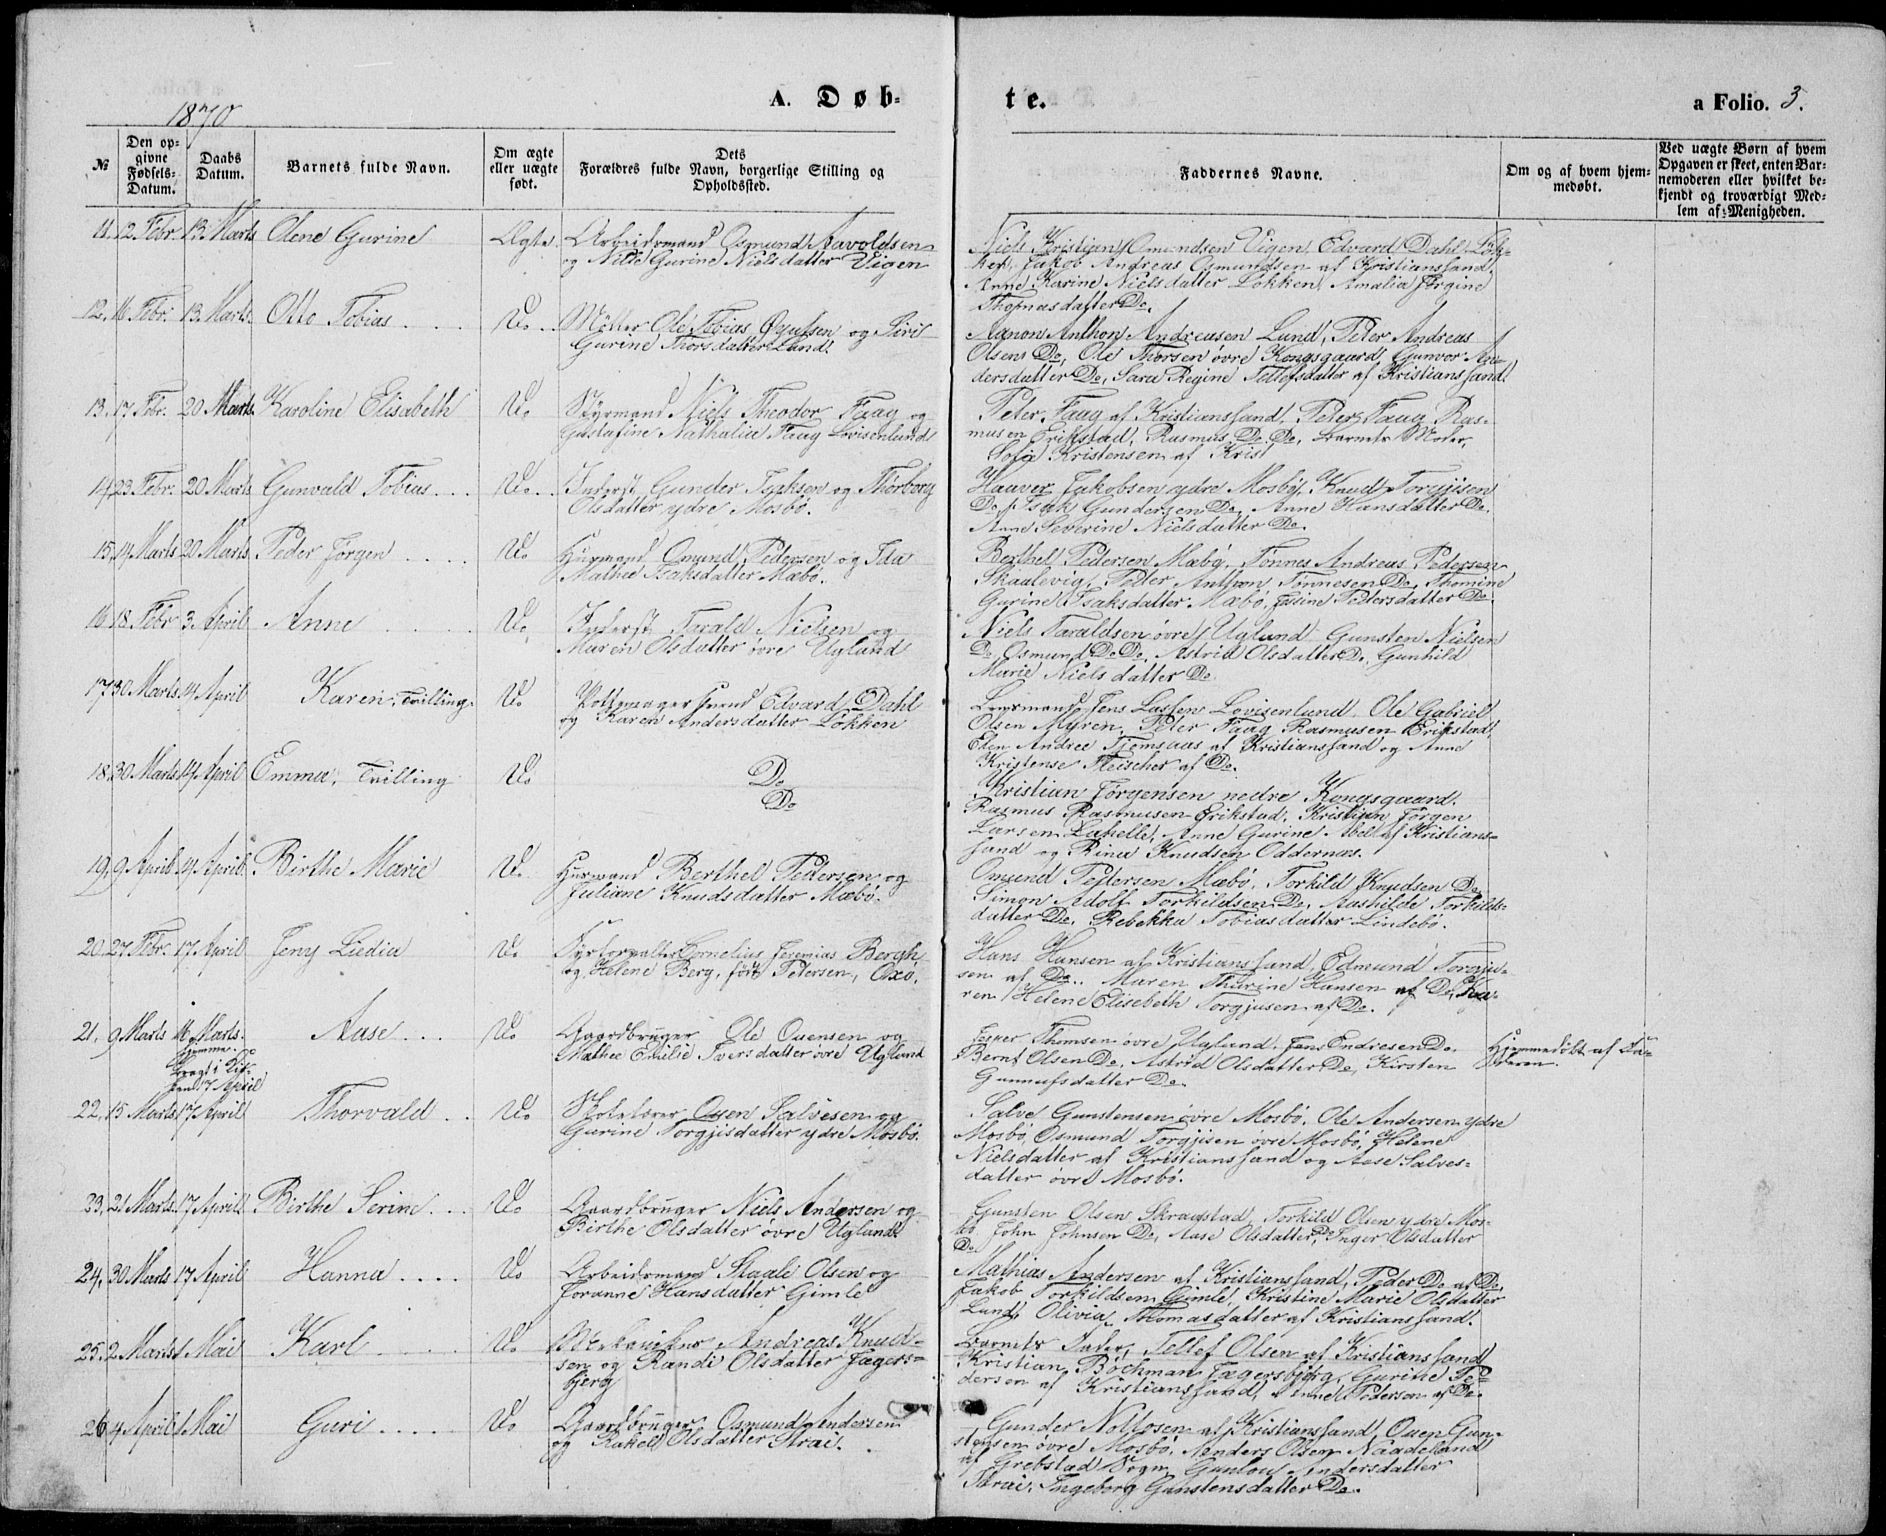 1870
A. Døb-
te.
a Folio. 3.
№
Den op-
givne
Fødsels-
Datum.
Daabs
Datum.
Barnets fulde Navn.
Om ægte
eller uægte
født.
Dets
Forældres fulde Navn, borgerlige Stilling og
Opholdssted.
Faddernes Navne.
Om og af hvem hjem-
medøbt.
Ved uægte Børn af hvem
Opgaven er skeet, enten Bar-
nemoderen eller hvilket be-
kjendt og troværdigt Med-
lem af Menigheden.
11. 12 Febr. 13 Marts Olene Gurine Ægte. Arbeidsmand Osmund Aavoldsen
og Nille Gurine Nielsdatter Vigen
Niels Kristian Omundsen Vigen, Edvard Dahl Løk-
ken, Jakob Andreas Osmundsen af Kristianssand,
Anne Karine Nielsdatter Løkken, Amalia Jørgine
Thomasdatter Do.
12. 16 Febr. 13 Marts Otto Tobias . . . Do . . Møller Ole Tobias and Siri
Gurine Thorsdatter Lund.
Aanon Anthon Andreasen Lund, Peter Andreas
Olsen Do, Ole Thorsen øvre Kongsgaard, Gunvor An-
dersdatter Do, Sara Regine Tellefsdatter af Kristianssand.
13. 17 Febr. 20 Marts. Karoline Elisabeth Do Styrmand Niels Theodor Faag og
Gustafine Nathalia Faag Lovisenlund
Peter Faag af Kristianssand, Peter Faag Ras-
musen Erikstad, Rasmus Do Do, Barnets Moder,
Sofie Kristensen af Krist
14. 23 Febr. 20 Marts Gunvald Tobias . . . Do . . Inderst Gunder Isaksen og Thorborg
Olsdatter ydre Mosbø.
Haaver Jakobsen ydre Mosbø, Knud Torgjisen
Do, Isak Gundersen Do, Anne Hansdatter Do.
Anne Severine Nielsdatter Do.
15. 14 Marts 20 Marts Peder Jørgen . . . . Do Huusmand Omund Pedersen og Ida
Mathea Isaksdatter Mæbø.
Berthel Pedersen Mæbø, Tønnes Andreas Pedersen
Skaalevig, Peder Anthon Tønnesen Do, Thomine
Gurine Isaksdatter Mæbø, Pedersdatter Do.
16 18 Febr 3 April Anne . . . . Do Inderst Tarald Nielsen og
Maren Olsdatter øvre Ugland
Niels Taraldsen øvre Ugland Gunsten Nielsen
Do, Osmund Do Do, Astrid Olsdatter Do, Gunhild
Marie Nielsdatter Do
17 30 Marts. 14 April Karen, Tvilling. Do Pottemagersvend Edvard Dahl
og Karen Andersdatter Løkken
Lensmand Jens Lassen Lovisenlund, Ole Gabriel
Olsen Myren, Peter Faag Rasmusen Erikstad,
Andrea Tjomsaas af Kristianssand og Anne
Kristense Fleischer af Do.
18. 30 Marts 14 April Emma, Tvilling Do Do
Do
Kristian Jørgensen nedre Kongsgaard.
Rasmus Rasmusen Erikstad, Kristian Jørgen
Larsen Lahelle, Anne Gurine Abel af Kristians-
sand og Rina Knudsen Oddernæs.
19. 9 April 14 April Birthe Marie Do Huusmand Berthel Pedersen og
Juliane Knudsdatter Mæbø.
Omund Pedersen Mæbø, Torkild Knudsen Do
Simon Adolf Torkildsen Do, Aashilde Torkilds-
datter Do, Rebekka Tobiasdatter Lindebø.
20. 27 Febr. 17 April Jeny Liedia Do Fyrforvalter Cornelius Jeremias Bergh
og Helene Berg, født Petersen, Oxø.
Hans Hansen af Kristianssand, Edmund Torgju-
sen af Do. Maren Thurine Hansen af Do, Ka-
ren Helene Elisebeth Torgjusen af Do.
21. 9 Marts 16 Marts. Aase . . . Do Gaardbruger Ole Ouensen og
Mathea Emilie Iversdatter øvre Ugland
hjemme.
bragt i Kir-
ken 17 April
Jesper Thomsen øvre Ugland, Jens Endresen Do.
Bernt Olsen Do, Astrid Olsdatter Do, Kirsten
Gunnufsdatter Do.
Hjemmedøbt af Fa-
deren.
22. 15 Marts 17 April Thorvald . . Do Ouen Salvesen og
Gurine Torgjisdatter ydre Mosbø.
Salve Gunstensen øvre Mosbø, Ole Andersen ydre
Mosbø, Osmund Torgjisen øvre Mosbø, Helene
Nielsdatter af Kristianssand og Aase Salves-
datter øvre Mosbø.
23. 21 Marts. 17 April Birthe Serine . . . Do Gaardbruger Niels Andersen og
Birthe Olsdatter øvre Ugland
Gunsten Olsen Skragstad, Torkild Olsen ydre Mos-
bø, John Johnsen Do, Aase Olsdatter Do, Inger Olsdatter
Do
24. 30 Marts 17 April Hanna . . . . Do Arbeidsmand Staale Olsen og
Joranne Hansdatter Gimle
Mathias Andersen af Kristianssand, Peder Do af Do,
Jakob Torkildsen Gimle, Kristine Marie Olsdatter
Lund, Olivia Thomasdatter af Kristianssand.
25. 2 Marts 1 Mai Karl . . . . Do Andreas Knud-
sen og Randi Olsdatter Jægers-
bjerg
Barnets Fader, Tellef Olsen af Kristianssand
Kristian Bøchman Jægersbjerg, Gurine Pe-
dersen af Kristianssand, Anne Pedersen af Do.
26 4 April 1 Mai Guri . . . . . Do Gaardbruger Osmund Andersen
og Rakel Olsdatter Strai.
Gunder Nottosen af Kristianssand, Ouen Gun-
stensen øvre Mosbø, Anders Olsen Naadeland
af Grebstad Sogn, Gunlou Andersdatter
Strai, Ingeborg Gunstensdatter Do.